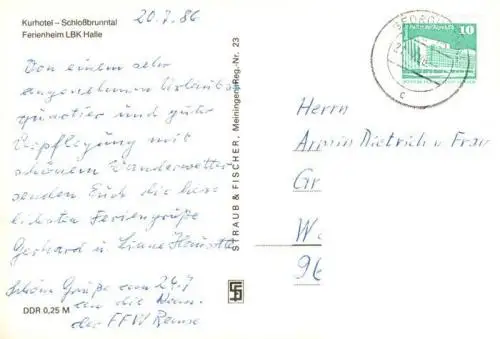 Kurhotel – Schloßbrunntal
Ferienheim LBK Halle
20.7.86
Von einem sehr
angenehmen Urlaubs
quartier und guter
Verpflegung mit
schönem Wanderwetter
senden Euch die herz
lichsten Feriengrüße
Gerhard u. Liane
Schöne Grüße am 24.7
an die Kam.
der FFW
DDR 0,25 M
STRAUB & FISCHER, Meiningen
Reg.-Nr. 23
10
Herrn
Armin Dietrich u Frau
Gr
W
96